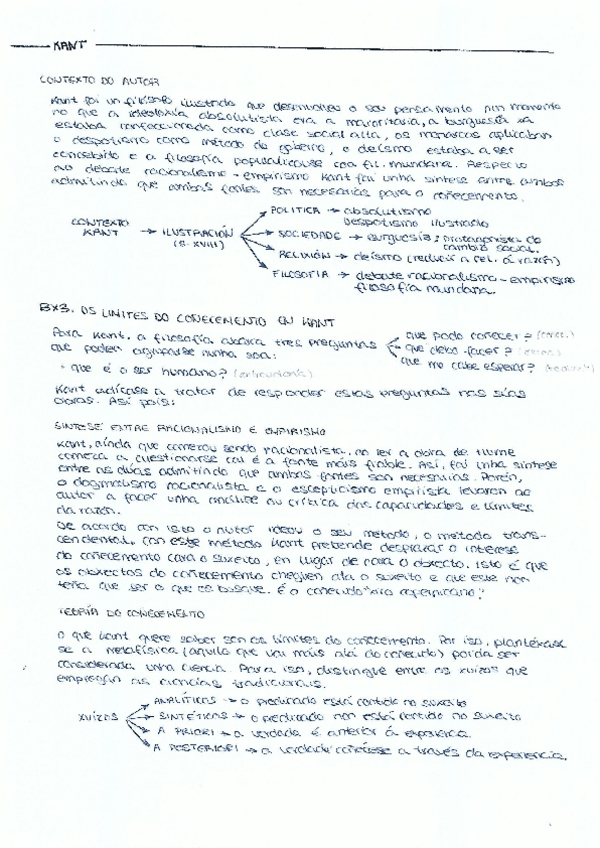 KANT
CONTEXTO DO AUTOR
Kant foi un filósofo ilustrado que desenvolveu o seu pensamento nun momento
no que a ideoloxía absolutista era a maioritaria, a burguesía xa
estaba confeccionada como clase social alta, os monarcas aplicaban
o despotismo como método de goberno, o deísmo estaba a ser
concebido e a filosofía popularizouse coa fil. mundana. Respecto
ao debate racionalismo-empirismo Kant fai unha síntese entre ambos
admitindo que ambas fontes son necesarias para o coñecemento.
CONTEXTO KANT → ILUSTRACIÓN (S. XVIII)
POLÍTICA → absolutismo
Despotismo ilustrado
SOCIEDADE → burguesía: protagonista do
cambio social.
RELIXIÓN → deísmo (reducir a rel. á razón)
FILOSOFÍA → debate racionalismo-empirismo
filosofía mundana.
BX3. OS LÍMITES DO COÑECEMENTO EN KANT
Para Kant, a filosofía abarca tres preguntas
que poden agruparse nunha soa:
que podo coñecer?
que debo facer?
que me cabe esperar?
· que é o ser humano? (antropoloxía)
Kant adícase a tratar de responder estas preguntas nas súas
obras. Así pois:
SÍNTESE ENTRE RACIONALISMO E EMPIRISMO
Kant, aínda que comezou sendo racionalista, ao ler a obra de Hume
comeza a cuestionarse cal é a fonte máis fiable. Así, fai unha síntese
entre as dúas admitindo que ambas fontes son necesarias. Porén,
o dogmatismo racionalista e o escepticismo empirista levaron ao
autor a facer unha análise ou crítica das capacidades e límites
da razón.
De acordo con isto o autor ideou o seu método, o método trans-
cendental, con este método Kant pretende desprazar o interese
do coñecemento cara o suxeito, en lugar de cara o obxecto. Isto é que
os obxectos do coñecemento cheguen ata o suxeito e que este non
teña que ser o que os busque. É o coñecido "xiro copernicano".
TEORÍA DO COÑECEMENTO
O que Kant quere saber son os límites do coñecemento. Por iso, plantéxase
se a metafísica (aquilo que vai máis alá do coñecido) podía ser
considerada unha ciencia. Para iso, distingue entre os xuízos que
empregan as ciencias tradicionais.
XUÍZOS
ANALÍTICOS → o predicado está contido no suxeito
SINTÉTICOS → o predicado non está contido no suxeito
A PRIORI → a verdade é anterior á experiencia.
A POSTERIORI → a verdade coñécese a través da experiencia.